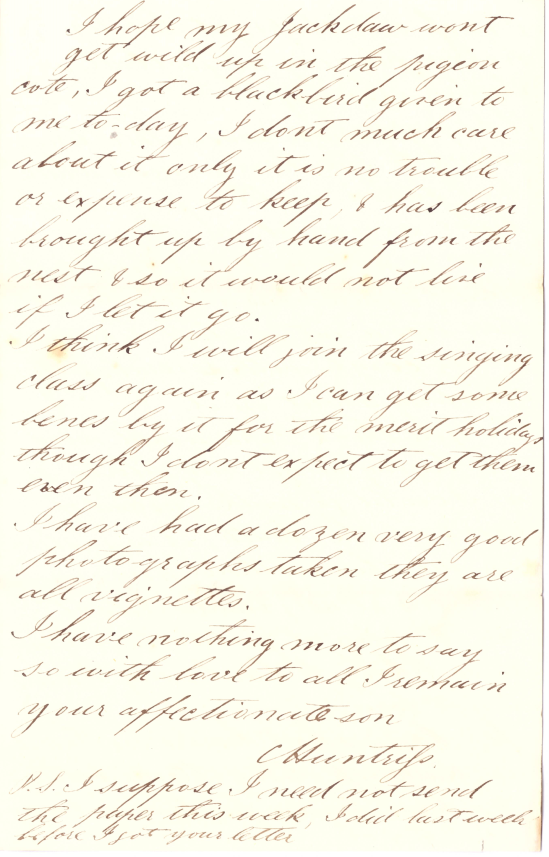 I hope my Jackdaw wont
get wild up in the pigeon
cote, I got a blackbird given to
me to-day, I dont much care
about it only it is no trouble
or expense to keep, & has been
brought up by hand from the
nest & so it would not live
if I let it go.
I think I will join the singing
class again as I can get some
benes by it for the merit holidays
though I dont expect to get them
even then.
I have had a dozen very good
photographs taken they are
all vignettes.
I have nothing more to say
so with love to all I remain
your affectionate son
C Huntriss.
P.S. I suppose I need not send
the paper this week, I did last week
before I got your letter